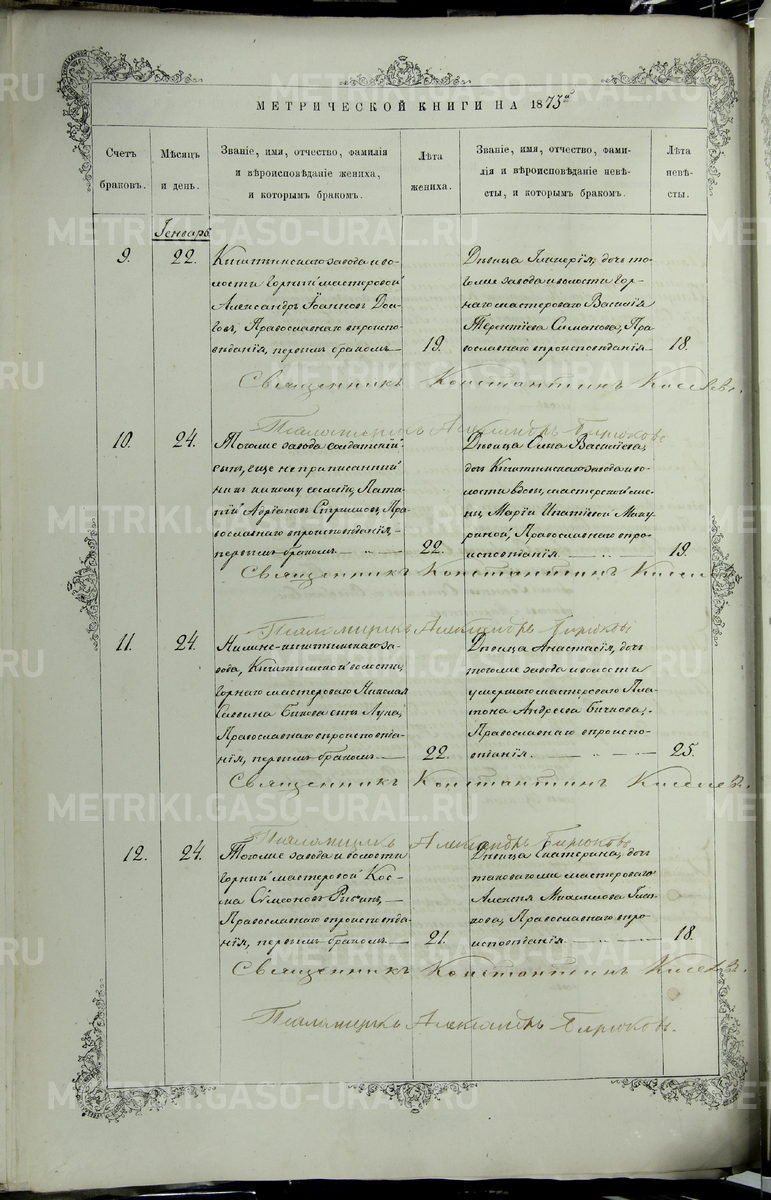 МЕТРИЧЕСКОЙ КНИГИ НА 1873й
Счетъ браковъ.
Мѣсяцъ и день.
Званіе, имя, отчество, фамилія
и вѣроисповѣданіе жениха,
и которымъ бракомъ.
Лѣта жениха.
Званіе, имя, отчество, фами-
лія и вѣроисповѣданіе невѣ-
сты, и которымъ бракомъ.
Лѣта невѣ-
сты.
Генварь
9. 22.
Кыштымскаго завода и во-
лости горный мастеровой
Александръ Іоанновъ
Православнаго вѣроиспо-
вѣданія, первымъ бракомъ
19.
Дѣвица Гликерія, дочь то-
гоже завода и волости гор-
наго мастероваго Василія
Терентіева Симакова, Пра-
вославнаго вѣроисповѣданія
18.
Священникъ Константинъ Киселевъ.
Псаломщикъ Александръ Бирюковъ
10. 24.
Тогоже завода солдатскій
сынъ, еще не приписанный
ни къ какому сословію, Пата-
пій Адріановъ Пра-
вославнаго вѣроисповѣданія,
первымъ бракомъ
22.
Дѣвица Анна Васильева,
дочь Кыштымскаго завода и во-
лости вдовы, мастерской же-
ны, Маріи Игнатіевой
Православнаго вѣро-
исповѣданія
19.
Священникъ Константинъ Киселевъ
Псаломщикъ Александръ Бирюковъ
11. 24.
Нижне-кыштымскаго за-
вода, Кыштымской волости,
горнаго мастероваго Николая
Саввина Бикова сынъ Лука,
Православнаго вѣроисповѣда-
нія, первымъ бракомъ
22.
Дѣвица Анастасія, дочь
тогоже завода и волости
умершаго мастероваго Пла-
тона Андреева Бичкова,
Православнаго вѣроиспо-
вѣданія.
25.
Священникъ Константинъ Киселевъ.
Псаломщикъ Александръ Бирюковъ
12. 24.
Тогоже завода и волости
горный мастеровой Кос-
ма Сѵмеоновъ
Православнаго вѣроисповѣда-
нія, первымъ бракомъ
21.
Дѣвица Екатерина, дочь
таковагоже мастероваго
Алексѣя Михаилова
Православнаго вѣро-
исповѣданія
18.
Священникъ Константинъ Киселевъ.
Псаломщикъ Александръ Бирюковъ.
METRIKI.GASO-URAL.RU